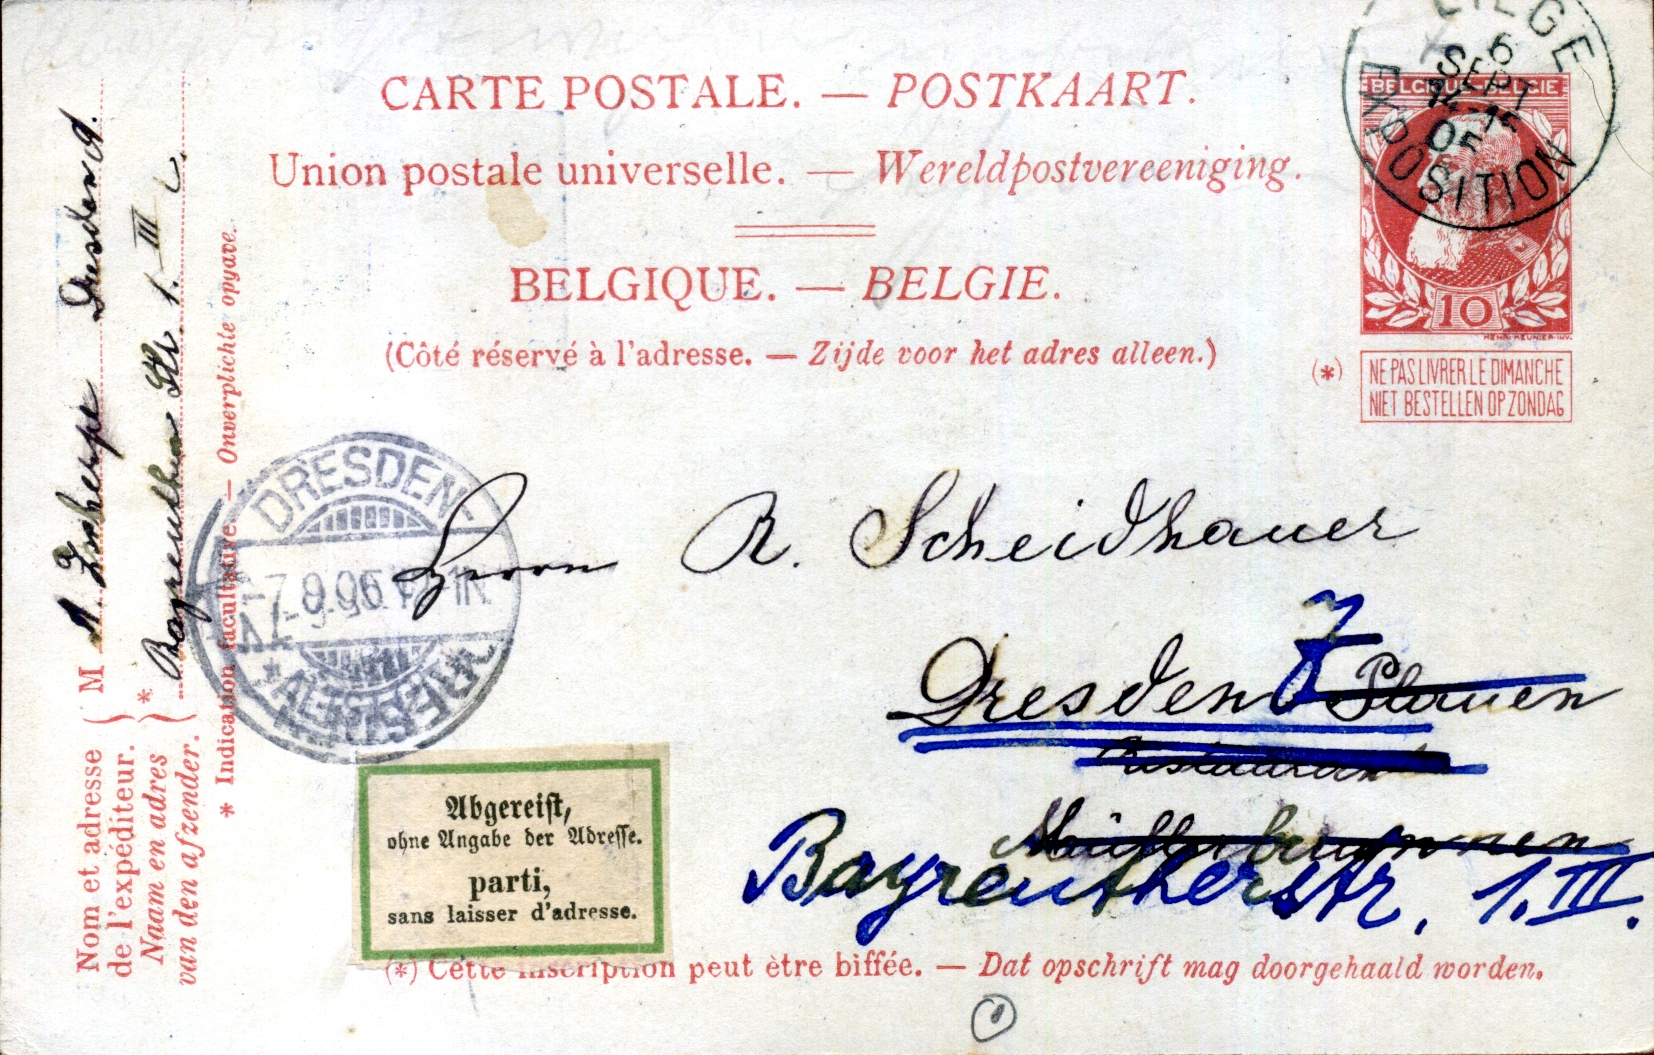 CARTE POSTALE. — POSTKAART.
Union postale universelle. — Wereldpostvereeniging.
BELGIQUE. — BELGIE.
(Côté réservé à l'adresse. — Zijde voor het adres alleen.)
LIEGE
6
SEPT
05
EXPOSITION
BELGIQUE BELGIE
10
HENRI MEUNIER INV.
(*)
NE PAS LIVRER LE DIMANCHE
NIET BESTELLEN OP ZONDAG
Dresden
Bayreuther Str. 1. III
M
Nom et adresse
de l'expéditeur.
Naam en adres
van den afzender.
*
* Indication facultative. — Onverplichte opgave.
DRESDEN
ALTST.
Herrn R. Scheidhauer
Dresden 7 Plauen
Restaurant
Bayreutherstr. 1. III.
Abgereist,
ohne Angabe der Adresse.
parti,
sans laisser d'adresse.
(*) Cette inscription peut être biffée. — Dat opschrift mag doorgehaald worden.